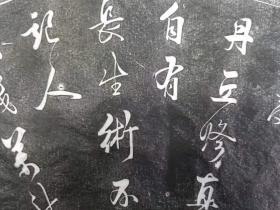 丹丘修真
自有
長生術不
記人